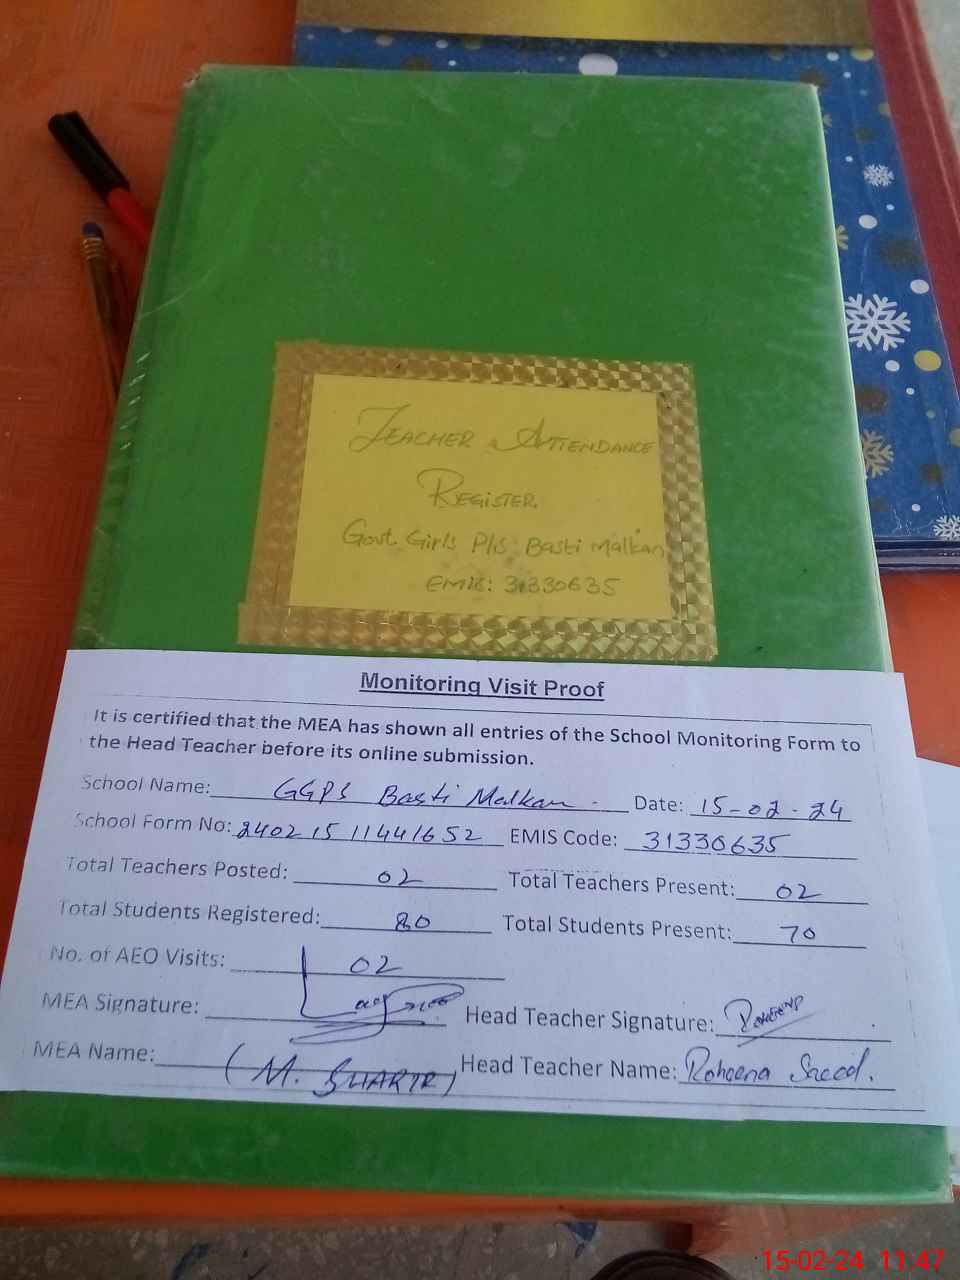 TEACHER ATTENDANCE
REGISTER
Govt. Girls P/S Basti Malkan
EMIS: 31330635
Monitoring Visit Proof
It is certified that the MEA has shown all entries of the School Monitoring Form to
the Head Teacher before its online submission.
School Name: GGPS Basti Malkan. Date: 15-02-24
School Form No: 2402151144 1652 EMIS Code: 31330635
Total Teachers Posted: 02 Total Teachers Present: 02
Total Students Registered: 80 Total Students Present: 70
No. of AEO Visits: 02
MEA Signature: Head Teacher Signature: Roheena
MEA Name: (M. ) Head Teacher Name: Roheena Saeed.
15-02-24 11:47